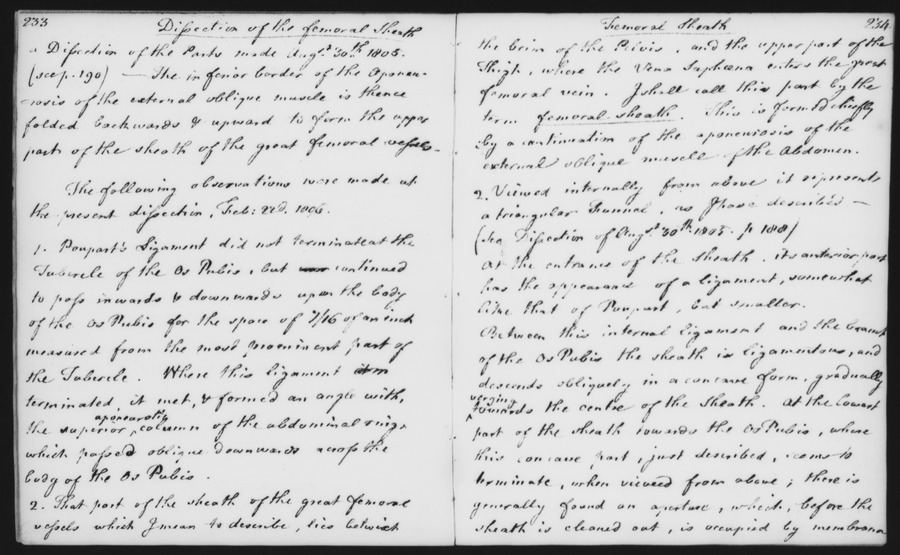 233
Dissection of the femoral Sheath
a Dissection of the Parts made Augst 30th 1805.
(see p. 190) — The inferior border of the Aponeu-
-rosis of the external oblique muscle is thence
folded backwards & upward to form the upper
part of the sheath of the great femoral vessels.
The following observations were made at
the present dissection, Feb: 22d. 1806.
1. Poupart's Ligament did not terminate at the
Tubercle of the Os Pubis, but continued
to pass inwards & downwards upon the body
of the Os Pubis for the space of 7/16 of an inch
measured from the most prominent part of
the Tubercle. Where this Ligament
terminated, it met, & formed an angle with,
the superior aponeurotic column of the abdominal ring,
which passed oblique downwards across the
body of the Os Pubis.
2. That part of the sheath of the great femoral
vessels which I mean to describe, lies betwixt
Femoral Sheath
234
the brim of the Pelvis, and the upper part of the
Thigh, where the Vena Saphæna enters the great
femoral vein. I shall call this part by the
term femoral sheath. This is formed chiefly
by a continuation of the aponeurosis of the
external oblique muscle of the Abdomen.
2. Viewed internally from above it represents
a triangular Funnel, as I have described —
(See Dissection of Augst 30th 1805. p 188)
At the entrance of the sheath, its anterior part
has the appearance of a ligament, somewhat
like that of Poupart, but smaller.
Between this internal Ligament and the
of the Os Pubis the sheath is ligamentous, and
descends obliquely in a concave form, gradually
verging towards the centre of the Sheath. At the lowest
part of the sheath towards the Os Pubis, where
this concave part, just described, seems to
terminate, when viewed from above; there is
generally found an aperture, which, before the
sheath is cleaned out, is occupied by membranous